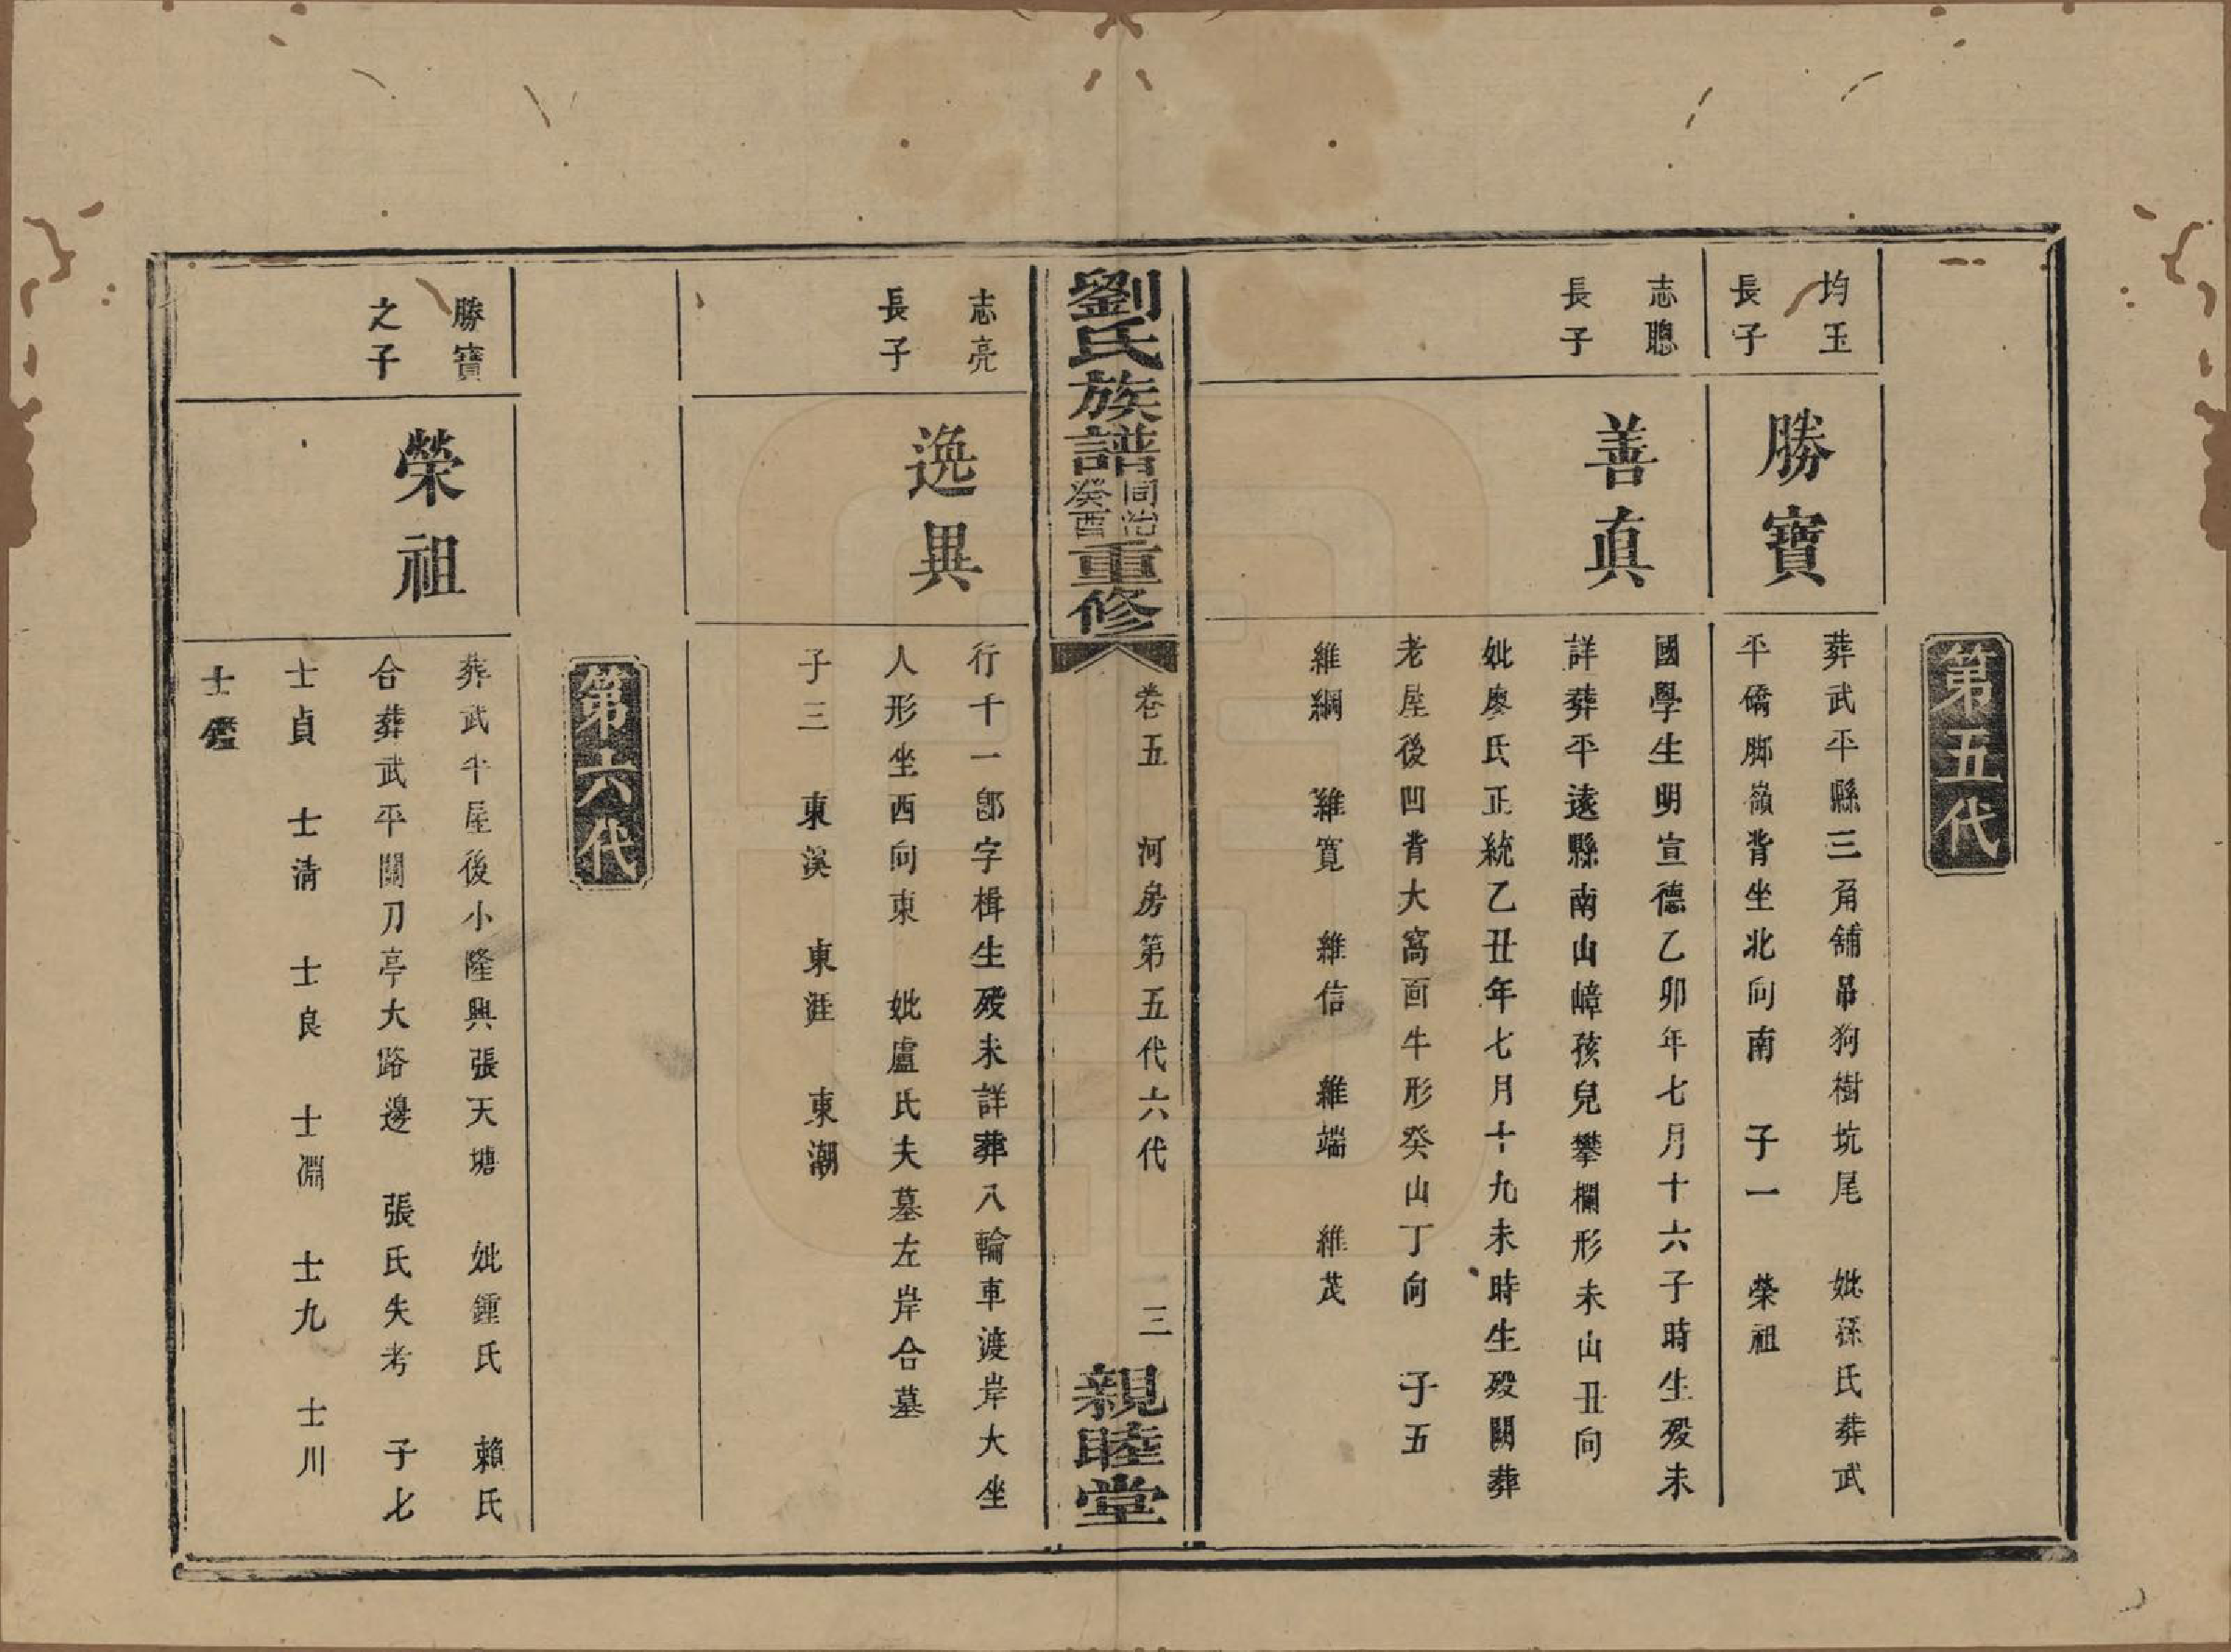 第五代
均玉
長子
勝寶
葬武平縣三角舖吊狗樹坑尾　妣孫氏葬武
平僑腳嶺背坐北向南　子一　榮祖
志聰
長子
善真
國學生明宣德乙卯年七月十六子時生殁未
詳葬平遠縣南山嶂孩兒攀欄形未山丑向
妣廖氏正統乙丑年七月十九未時生殁闕葬
老屋後凹背大窩面牛形癸山丁向　子五
維綱　維寬　維信　維端　維茂
劉氏族譜同治癸酉重修
卷五　河房第五代六代　三
親睦堂
志亮
長子
逸異
行千一郎字楫生殁未詳葬八輪車渡岸大坐
人形坐西向東　妣盧氏夫墓左岸合墓
子三　東溪　東涯　東潮
第六代
勝寶
之子
榮祖
葬武平屋後小隆興張天塘　妣鍾氏　賴氏
合葬武平關刀亭大路邊　張氏失考　子七
士貞　士清　士良　士淵　士九　士川
士鑑